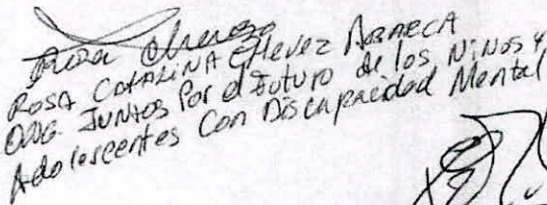 Rosa Chevez
ROSA CATALINA CHEVEZ ABARCA
ONG JUNTOS Por el Futuro de los NiNos y
Adolescentes Con Discapacidad Mental